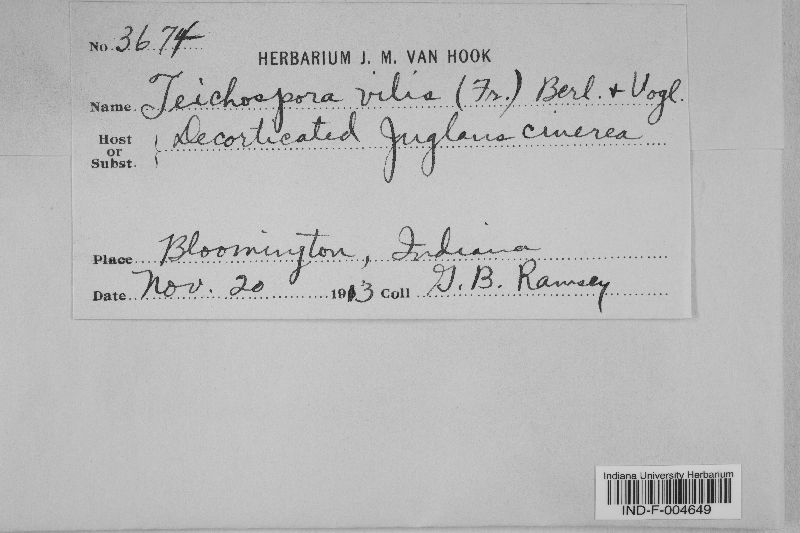 No. 3674
HERBARIUM J. M. VAN HOOK
Name Teichospora vilis (Fr.) Berl. & Vogl.
Host or Subst. Decorticated Juglans cinerea
Place Bloomington, Indiana
Date Nov. 20 1913 Coll G. B. Ramsey
Indiana University Herbarium
IND-F-004649